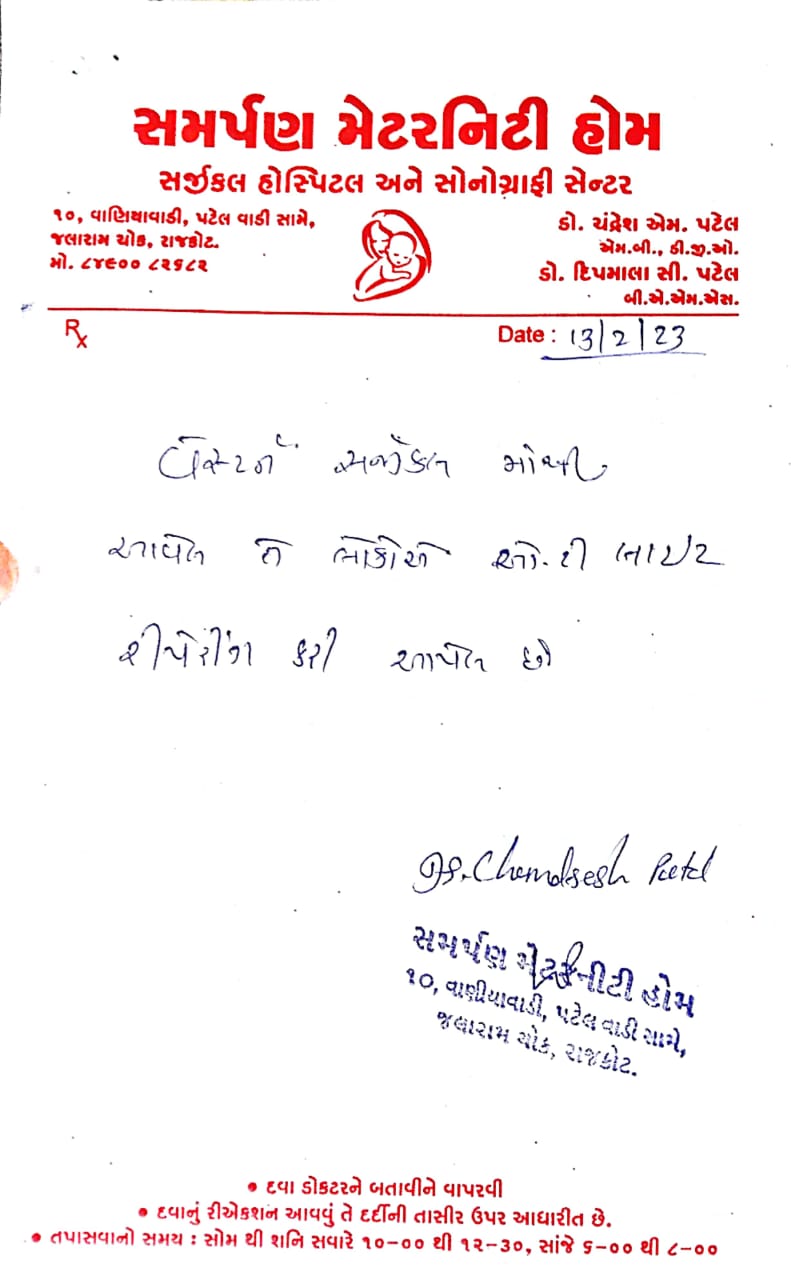 સમર્પણ મેટરનિટી હોમ
સર્જીકલ હોસ્પિટલ અને સોનોગ્રાફી સેન્ટર
૧૦, વાણિયાવાડી, પટેલ વાડી સામે,
જલારામ ચોક, રાજકોટ.
મો. ૮૪૯૦૦ ૮૨૬૮૨
ડો. ચંદ્રેશ એમ. પટેલ
એમ.બી., ડી.જી.ઓ.
ડો. દિપમાલા સી. પટેલ
બી.એ.એમ.એસ.
Rx
Date : 13/2/23
સર્જીકલ માંથી
આવેલ છે ઓ.ટી લાઈટ
રીપેરીંગ કરી આપેલ છે
Dr. Chandresh Patel
સમર્પણ મેટરનીટી હોમ
૧૦, વાણીયાવાડી, પટેલ વાડી સામે,
જલારામ ચોક, રાજકોટ.
• દવા ડોકટરને બતાવીને વાપરવી
• દવાનું રીએકશન આવવું તે દર્દીની તાસીર ઉપર આધારીત છે.
• તપાસવાનો સમય : સોમ થી શનિ સવારે ૧૦-૦૦ થી ૧૨-૩૦, સાંજે ૬-૦૦ થી ૮-૦૦